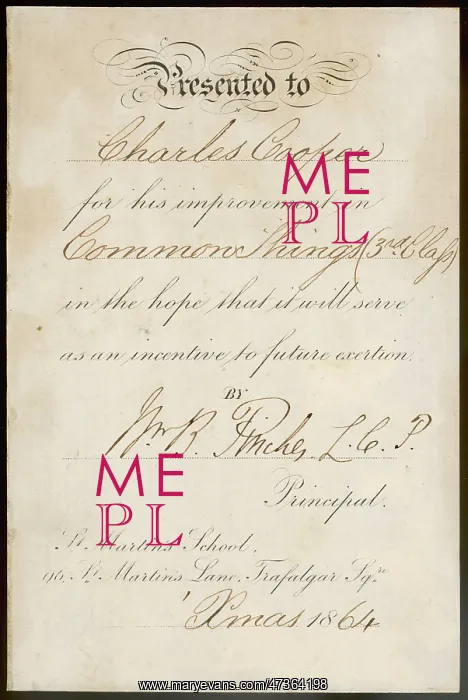 Presented to
Charles Cooper
for his improvement in
Common Things (3rd Class)
in the hope that it will serve
as an incentive to future exertion.
BY
Wm. R. Pinches. L. C. P.
Principal.
St. Martin's School.
96, St. Martin's Lane, Trafalgar Sqre.
Xmas 1864
ME
PL
ME
PL
www.maryevans.com/47364198